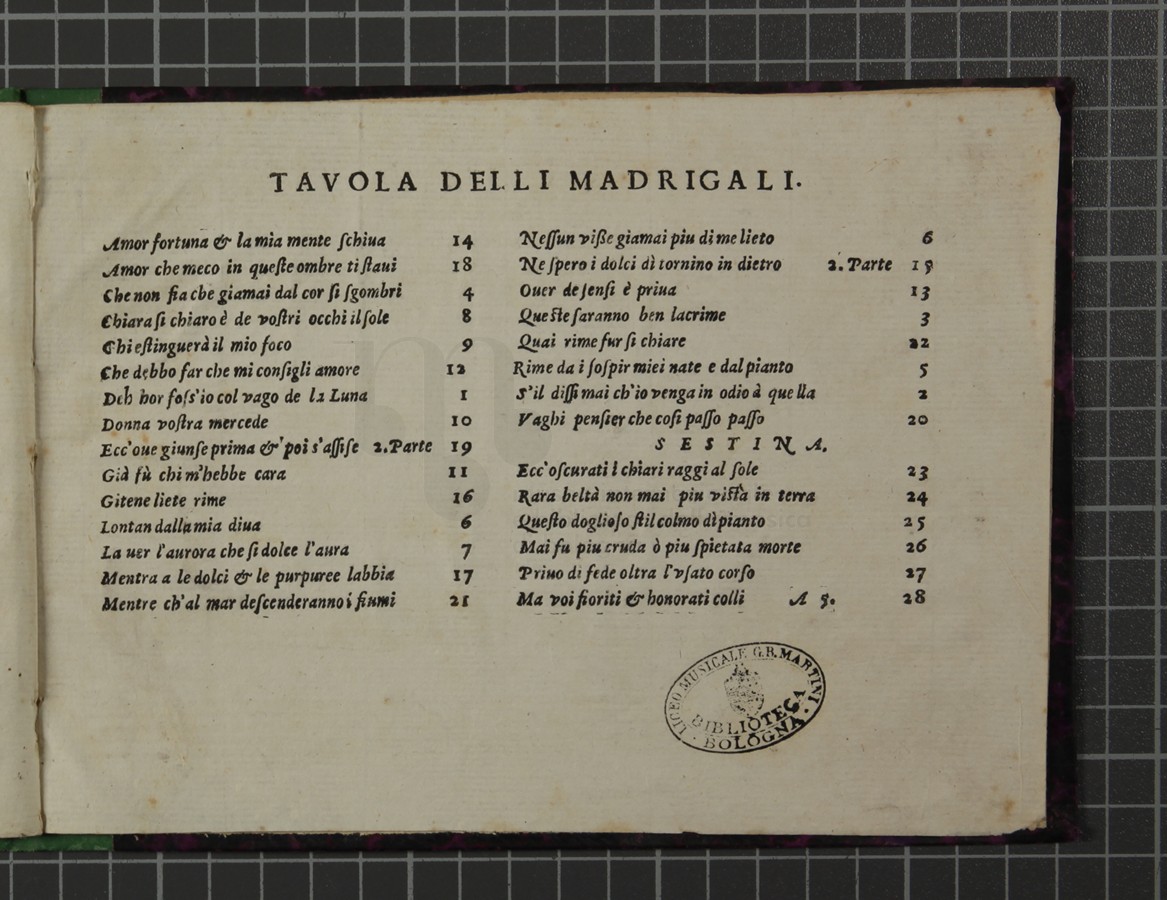 TAVOLA DELLI MADRIGALI.
Amor fortuna & la mia mente ſchiua 14
Amor che meco in queſte ombre ti ſtaui 18
Che non fia che giamai dal cor ſi ſgombri 4
Chiara ſi chiaro è de voſtri occhi il ſole 8
Chi eſtinguerà il mio foco 9
Che debbo far che mi conſigli amore 12
Deh hor foſs'io col vago de la Luna 1
Donna voſtra mercede 10
Ecc'oue giunſe prima & poi s'aſſiſe 2. Parte 19
Già fù chi m'hebbe cara 11
Gitene liete rime 16
Lontan dalla mia diua 6
La uer l'aurora che ſi dolce l'aura 7
Mentra a le dolci & le purpuree labbia 17
Mentre ch'al mar deſcenderanno i fiumi 21
Neſſun viſſe giamai piu di me lieto 6
Ne ſpero i dolci dì tornino in dietro 2. Parte 15
Ouer de ſenſi è priua 13
Queſte ſaranno ben lacrime 3
Quai rime fur ſi chiare 22
Rime da i ſoſpir miei nate e dal pianto 5
S'il diſſi mai ch'io venga in odio à quella 2
Vaghi penſier che coſi paſſo paſſo 20
SESTINA.
Ecc'oſcurati i chiari raggi al ſole 23
Rara beltà non mai piu viſta in terra 24
Queſto doglioſo ſtil colmo di pianto 25
Mai fu piu cruda ò piu ſpietata morte 26
Priuo di fede oltra l'vſato corſo 27
Ma voi fioriti & honorati colli A 5. 28
LICEO MUSICALE G.B. MARTINI
BIBLIOTECA
BOLOGNA